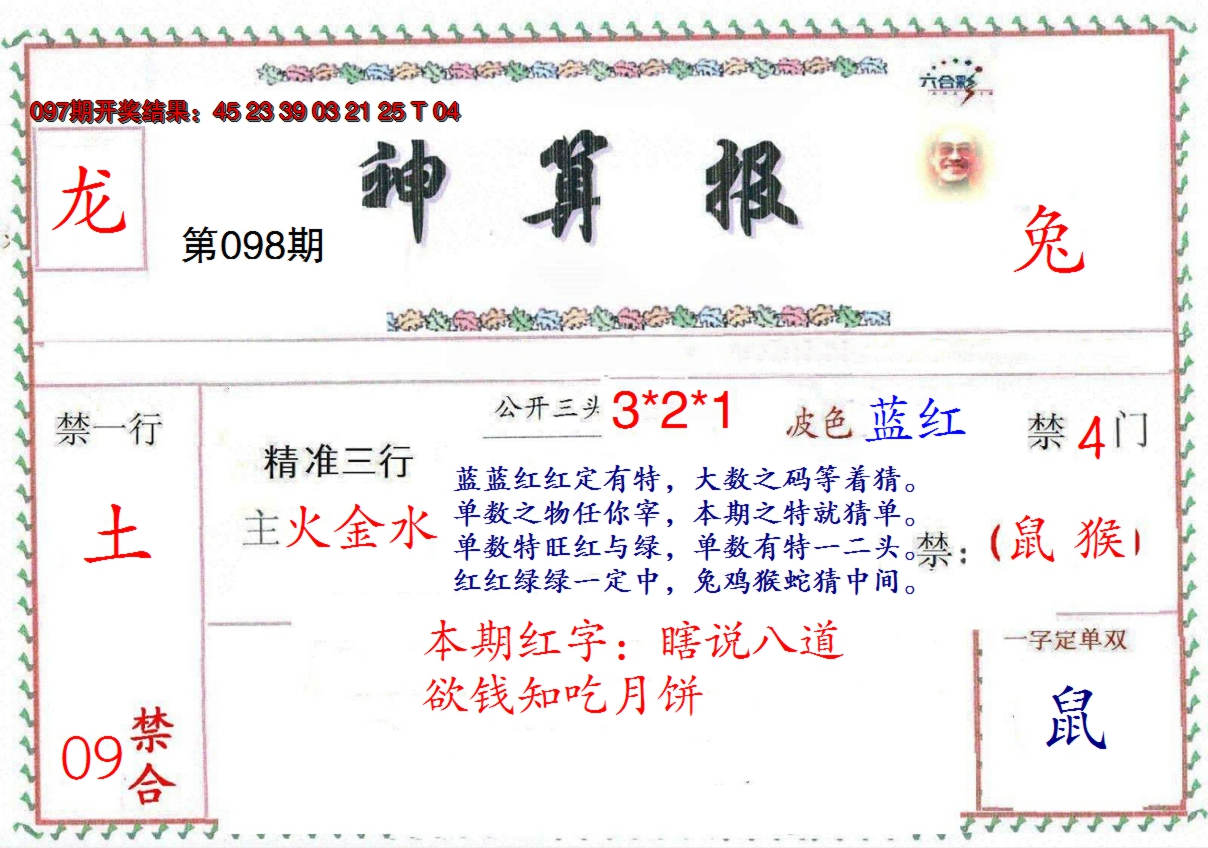 六合彩
097期开奖结果：45 23 39 03 21 25 T 04
神算报
龙
第098期
兔
禁一行
土
09
禁合
精准三行
主火金水
公开三头 3*2*1
波色 蓝红
蓝蓝红红定有特，大数之码等着猜。
单数之物任你宰，本期之特就猜单。
单数特旺红与绿，单数有特一二头。
红红绿绿一定中，兔鸡猴蛇猜中间。
禁4门
禁：（鼠 猴）
本期红字：瞎说八道
欲钱知吃月饼
一字定单双
鼠